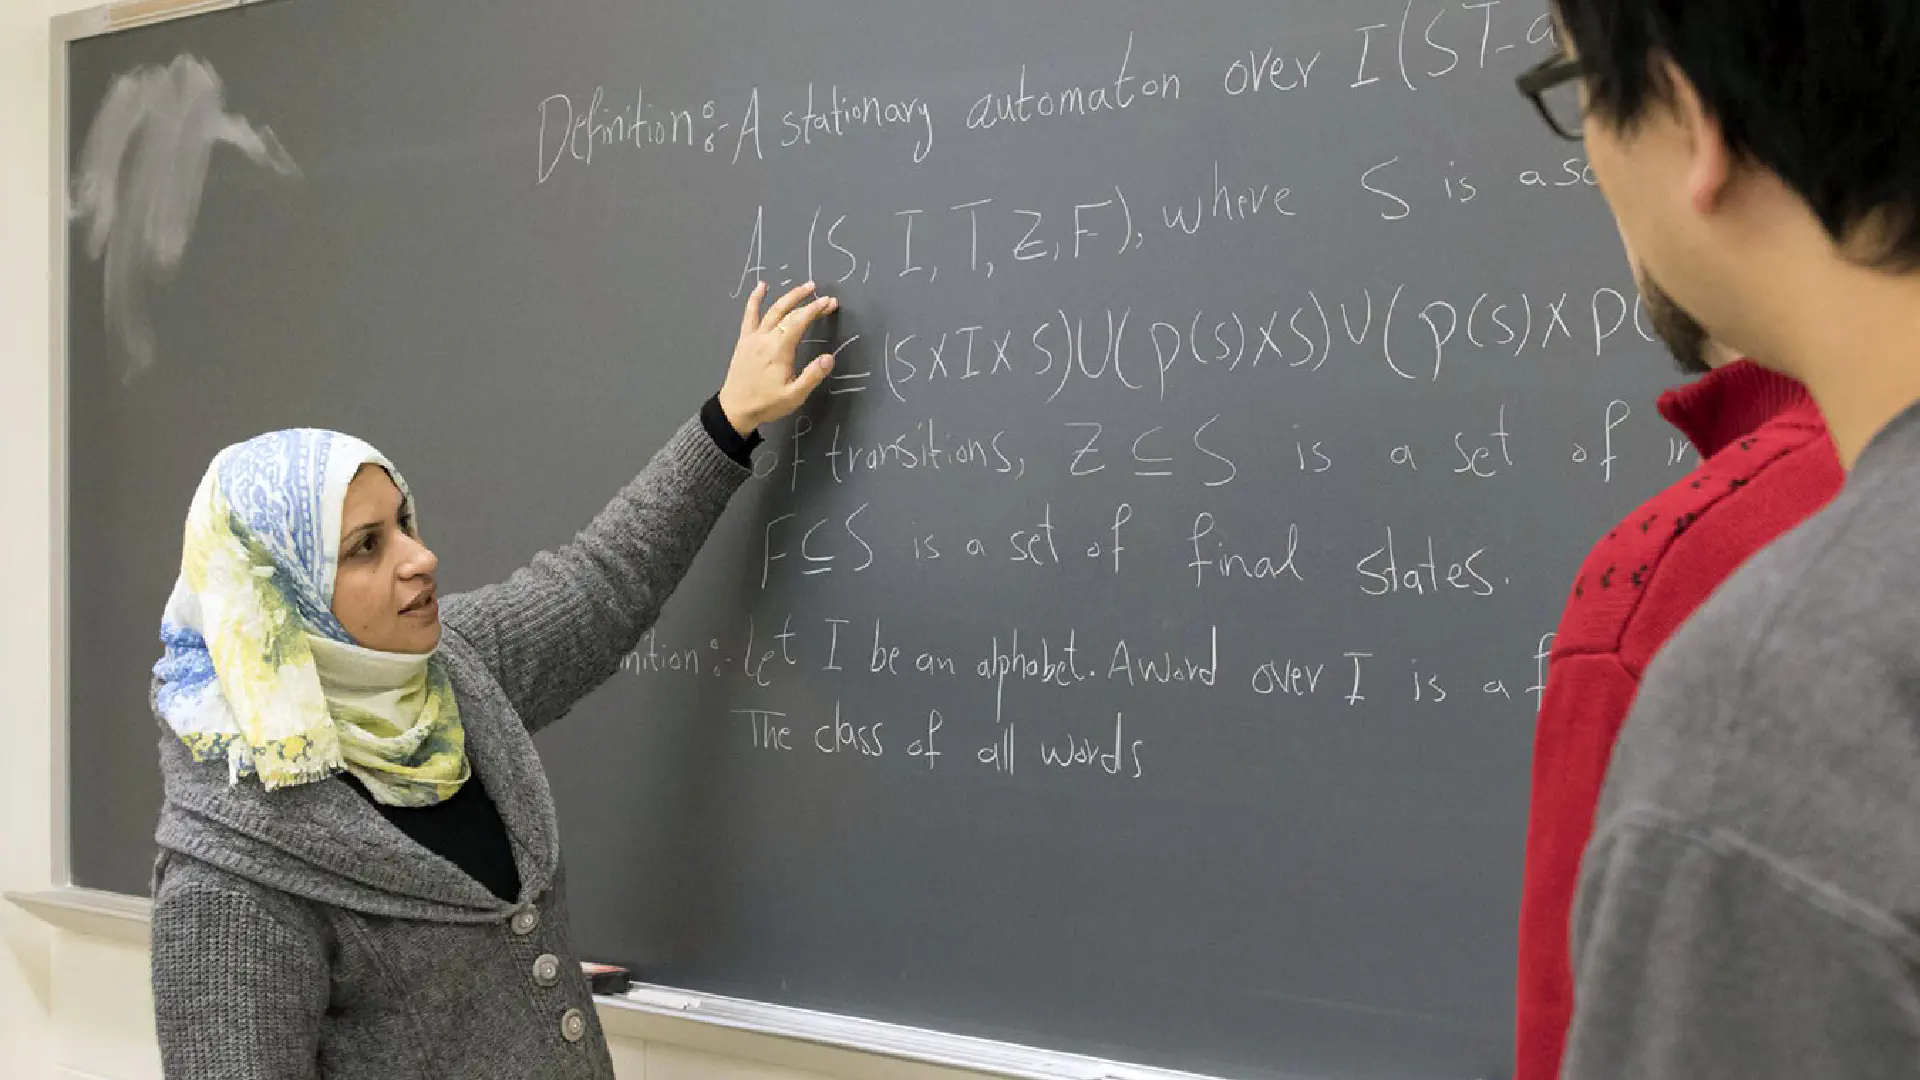 Definition:- A stationary automaton over I (ST-a
A = (S, I, T, Z, F), where S is a
⊆ (S×I×S)∪(p(s)×S)∪(p(s)×p(
of transitions, Z ⊆ S is a set of
F ⊆ S is a set of final states.
nition:- Let I be an alphabet. A word over I is a f
The class of all words